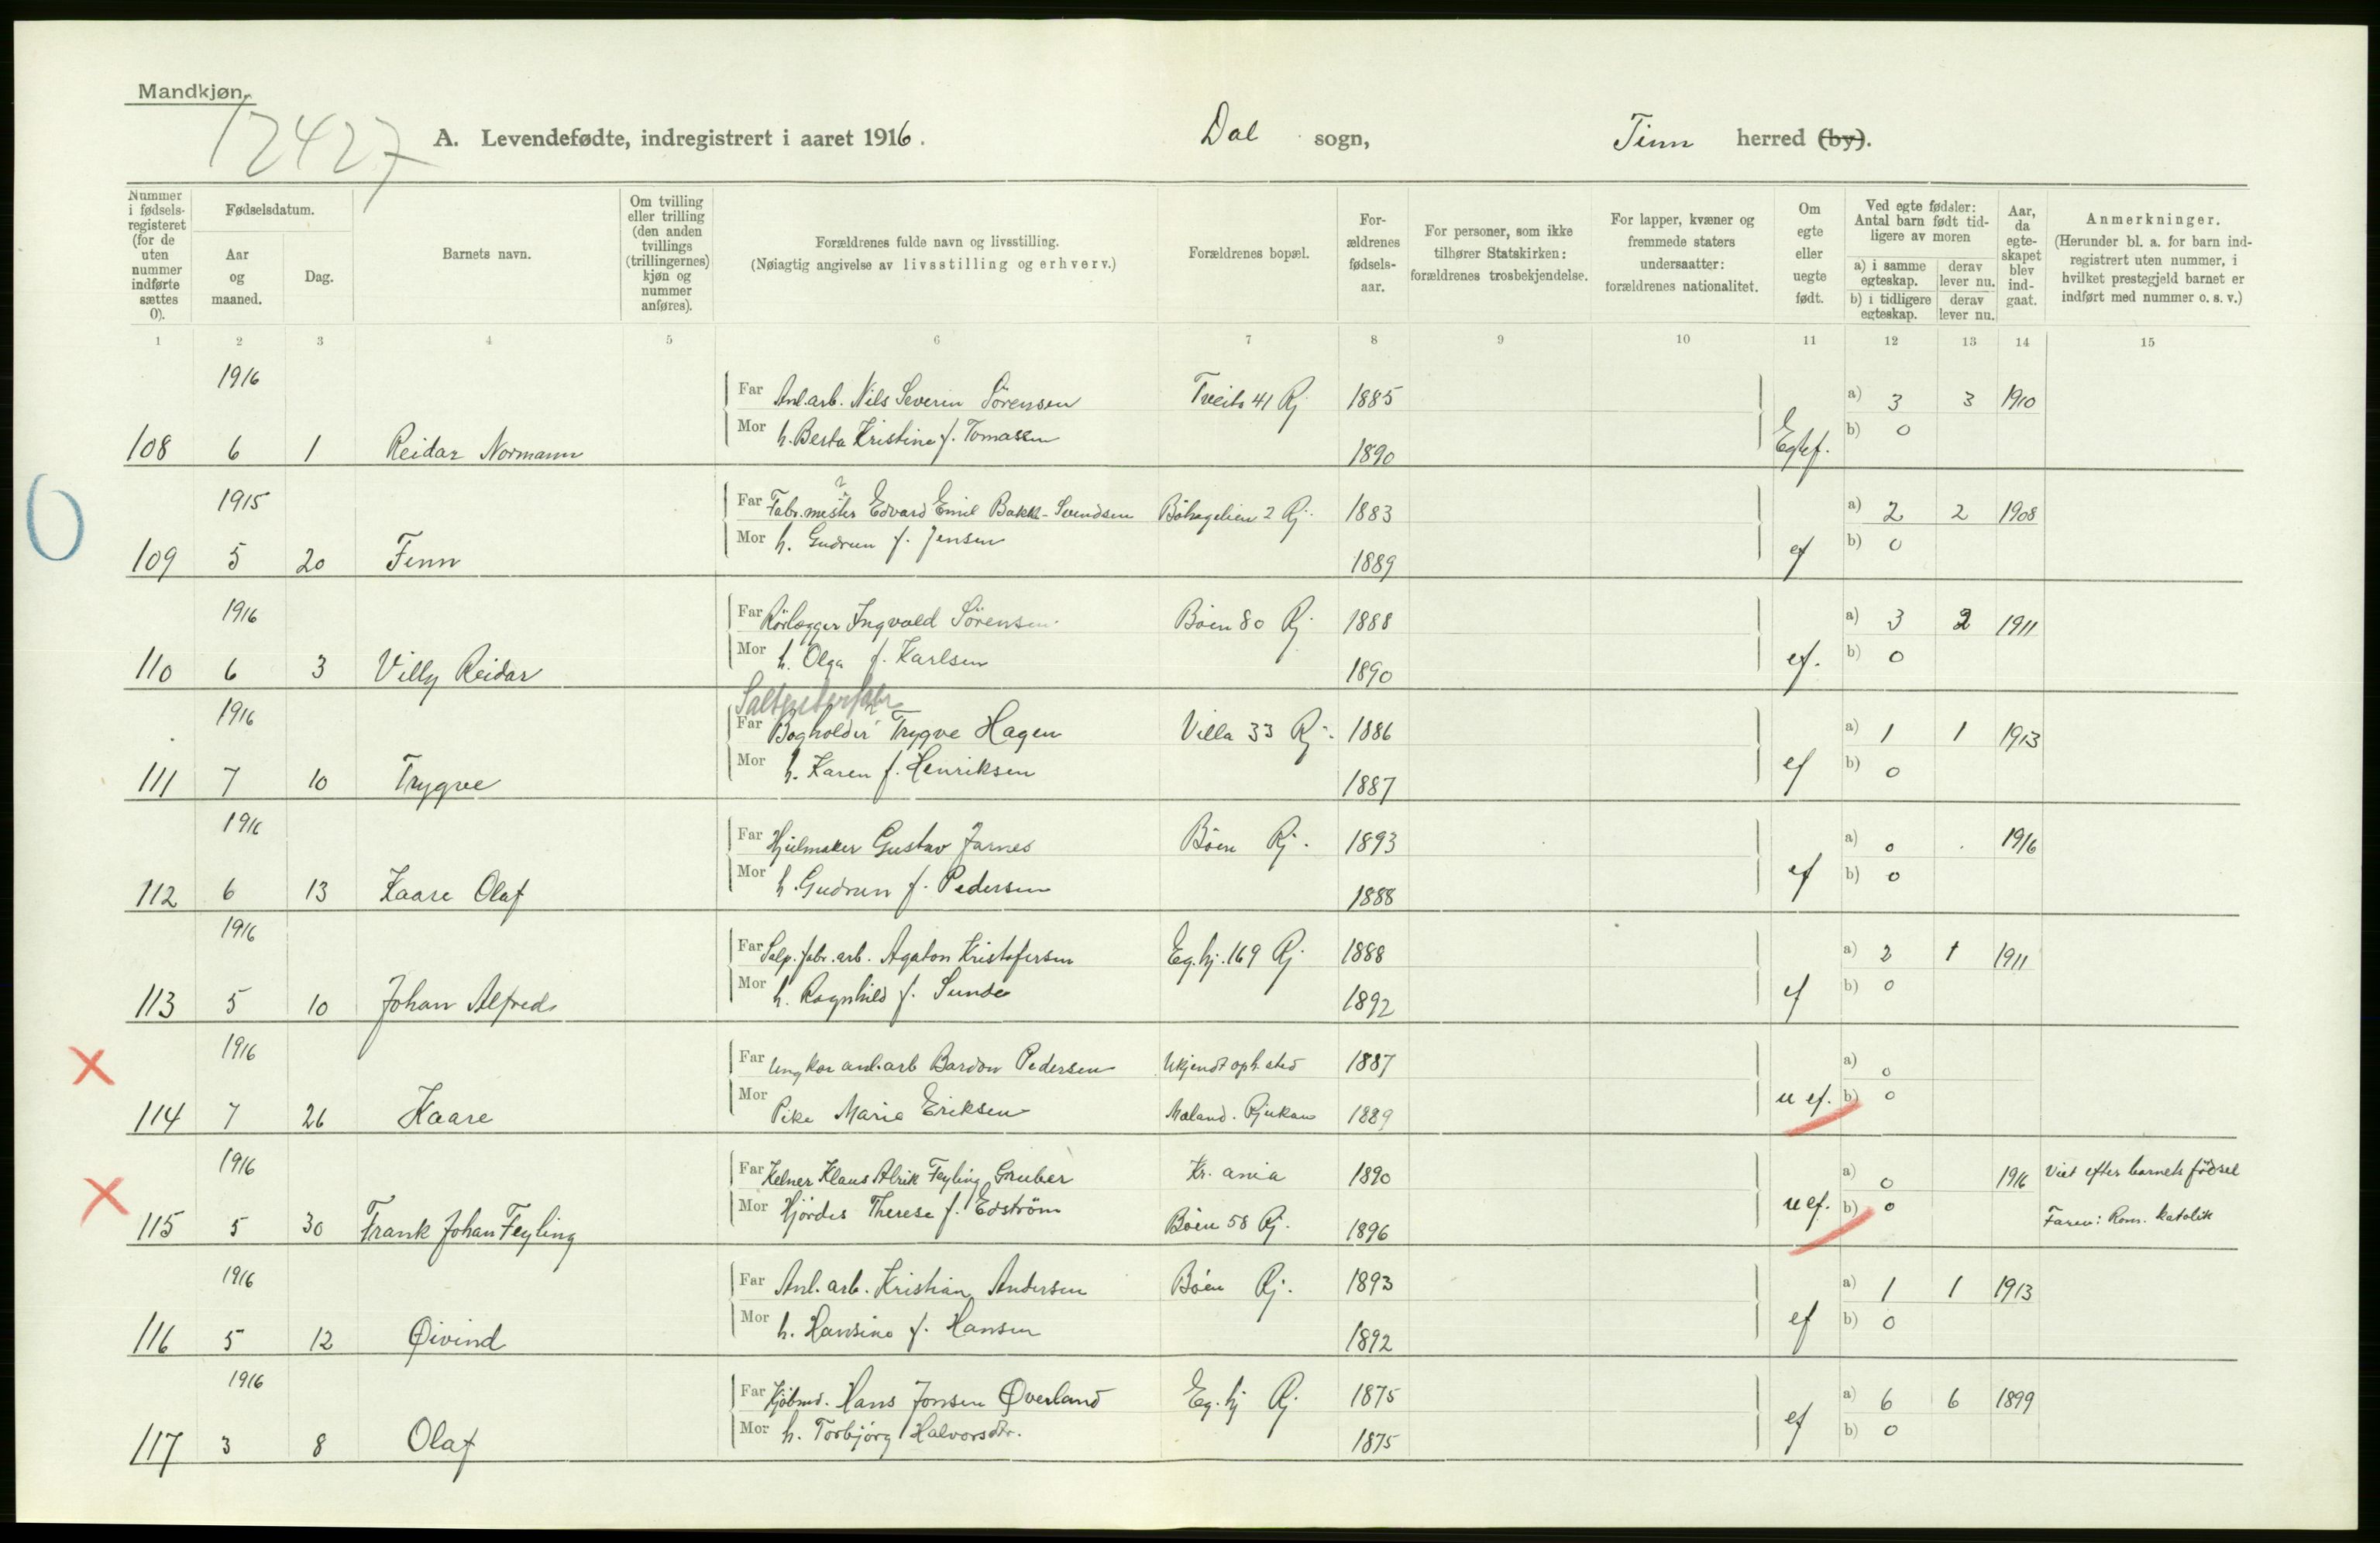 Mandkjøn.
12427
A. Levendefødte, indregistrert i aaret 1916. Dal sogn, Tinn herred (by).
Nummer i fødsels-registeret (for de uten nummer indførte sættes 0).
Fødselsdatum.
Aar og maaned.
Dag.
Barnets navn.
Om tvilling eller trilling (den anden tvillings (trillingernes) kjøn og nummer anføres).
Forældrenes fulde navn og livsstilling.
(Nøiagtig angivelse av livsstilling og erhverv.)
Forældrenes bopæl.
For-ældrenes fødsels-aar.
For personer, som ikke tilhører Statskirken: forældrenes trosbekjendelse.
For lapper, kvæner og fremmede staters undersaatter: forældrenes nationalitet.
Om egte eller uegte født.
Ved egte fødsler: Antal barn født tid-ligere av moren
a) i samme egteskap.
derav lever nu.
b) i tidligere egteskap.
derav lever nu.
Aar, da egte-skapet blev ind-gaat.
Anmerkninger.
(Herunder bl. a. for barn ind-registrert uten nummer, i hvilket prestegjeld barnet er indført med nummer o. s. v.)
1 2 3 4 5 6 7 8 9 10 11 12 13 14 15
1916 Far Anl.arb. Nils Severin Sörensen Tveito 41 Rj 1885 a) 3 3 1910
108 6 1 Reidar Normann Mor h. Berta Kristine f. Tomassen 1890 Egtef. b) 0
1915 Far Fabr.mester Edvard Emil Bakke-Svendsen 2 Rj. 1883 a) 2 2 1908
109 5 20 Finn Mor h. Gudrun f. Jensen 1889 ef b) 0
1916 Far Rörlægger Ingvald Sörensen Böen 80 Rj 1888 a) 3 2 1911
110 6 3 Villy Reidar Mor h. Olga f. Karlsen 1890 ef. b) 0
Saltpeterfabr
1916 Far Bogholder Trygve Hagen Villa 33 Rj. 1886 a) 1 1 1913
111 7 10 Trygve Mor h. Karen f. Henriksen 1887 ef b) 0
1916 Far Hjulmaker Gustav Jarnes Böen Rj. 1893 a) 0 . 1916
112 6 13 Kaare Olaf Mor h. Gudrun f. Pedersen 1888 ef b) 0
1916 Far Salp.fabr.arb. Agaton Kristofersen Eg.hj. 169 Rj. 1888 a) 2 1 1911
113 5 10 Johan Alfred Mor h. Ragnhild f. Sunde 1892 ef b) 0
1916 Far Ungkar anl.arb Bardon Pedersen Ukjendt oph.sted 1887 a) 0
114 7 26 Kaare Mor Pike Marie Eriksen Mæland. Rjukan 1889 u ef. b) 0
1916 Far Kelner Klaus Alrik Feyling Gruber Kr.ania 1890 a) 0 1916 Viet efter barnets födsel
115 5 30 Frank Johan Feyling Mor Hjördis Therese f. Edström Böen 58 Rj. 1896 u ef. b) 0 Faren: Rom. katolik
1916 Far Anl. arb. Kristian Andersen Böen Rj. 1893 a) 1 1 1913
116 5 12 Øivind Mor h. Hansine f. Hansen 1892 ef b) 0
1916 Far Kjöbmd. Hans Jonsen Øverland Eg. hj Rj. 1875 a) 6 6 1899
117 3 8 Olaf Mor h. Torbjörg Halvorsdtr. 1875 ef b) 0